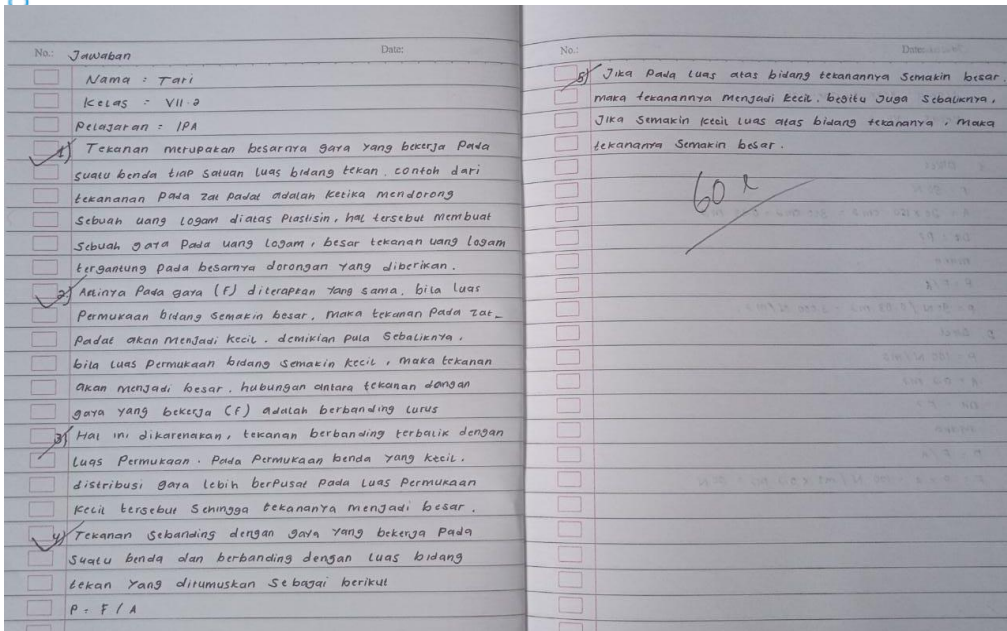 No.: Jawaban Date:
Nama : Tari
Kelas : VII.2
Pelajaran : IPA
1) Tekanan merupakan besarnya gaya yang bekerja Pada
suatu benda tiap satuan luas bidang tekan. contoh dari
tekananan Pada zat Padat adalah ketika mendorong
Sebuah uang logam diatas Plastisin, hal tersebut membuat
Sebuah gaya Pada uang logam, besar tekanan uang logam
tergantung pada besarnya dorongan yang diberikan.
2) Artinya Pada gaya (F) diterapkan yang sama, bila luas
Permukaan bidang semakin besar, maka tekanan Pada zat-
Padat akan menjadi kecil. demikian pula sebaliknya,
bila luas Permukaan bidang semakin kecil, maka tekanan
akan menjadi besar. hubungan antara tekanan dangan
gaya yang bekerja (F) adalah berbanding lurus
3) Hal ini dikarenakan, tekanan berbanding terbalik dengan
Luas Permukaan. Pada Permukaan benda yang kecil.
distribusi gaya lebih berpusat Pada luas Permukaan
kecil tersebut Sehingga tekananya menjadi besar.
4) Tekanan Sebanding dengan gaya yang bekerja Pada
Suatu benda dan berbanding dengan luas bidang
tekan yang dirumuskan Sebagai berikut
P = F / A
No.: Date:
5) Jika Pada luas atas bidang tekanannya Semakin besar.
maka tekanannya menjadi kecil. begitu Juga Sebaliknya.
Jika Semakin kecil luas atas bidang tekananya, maka
tekananya Semakin besar.
60